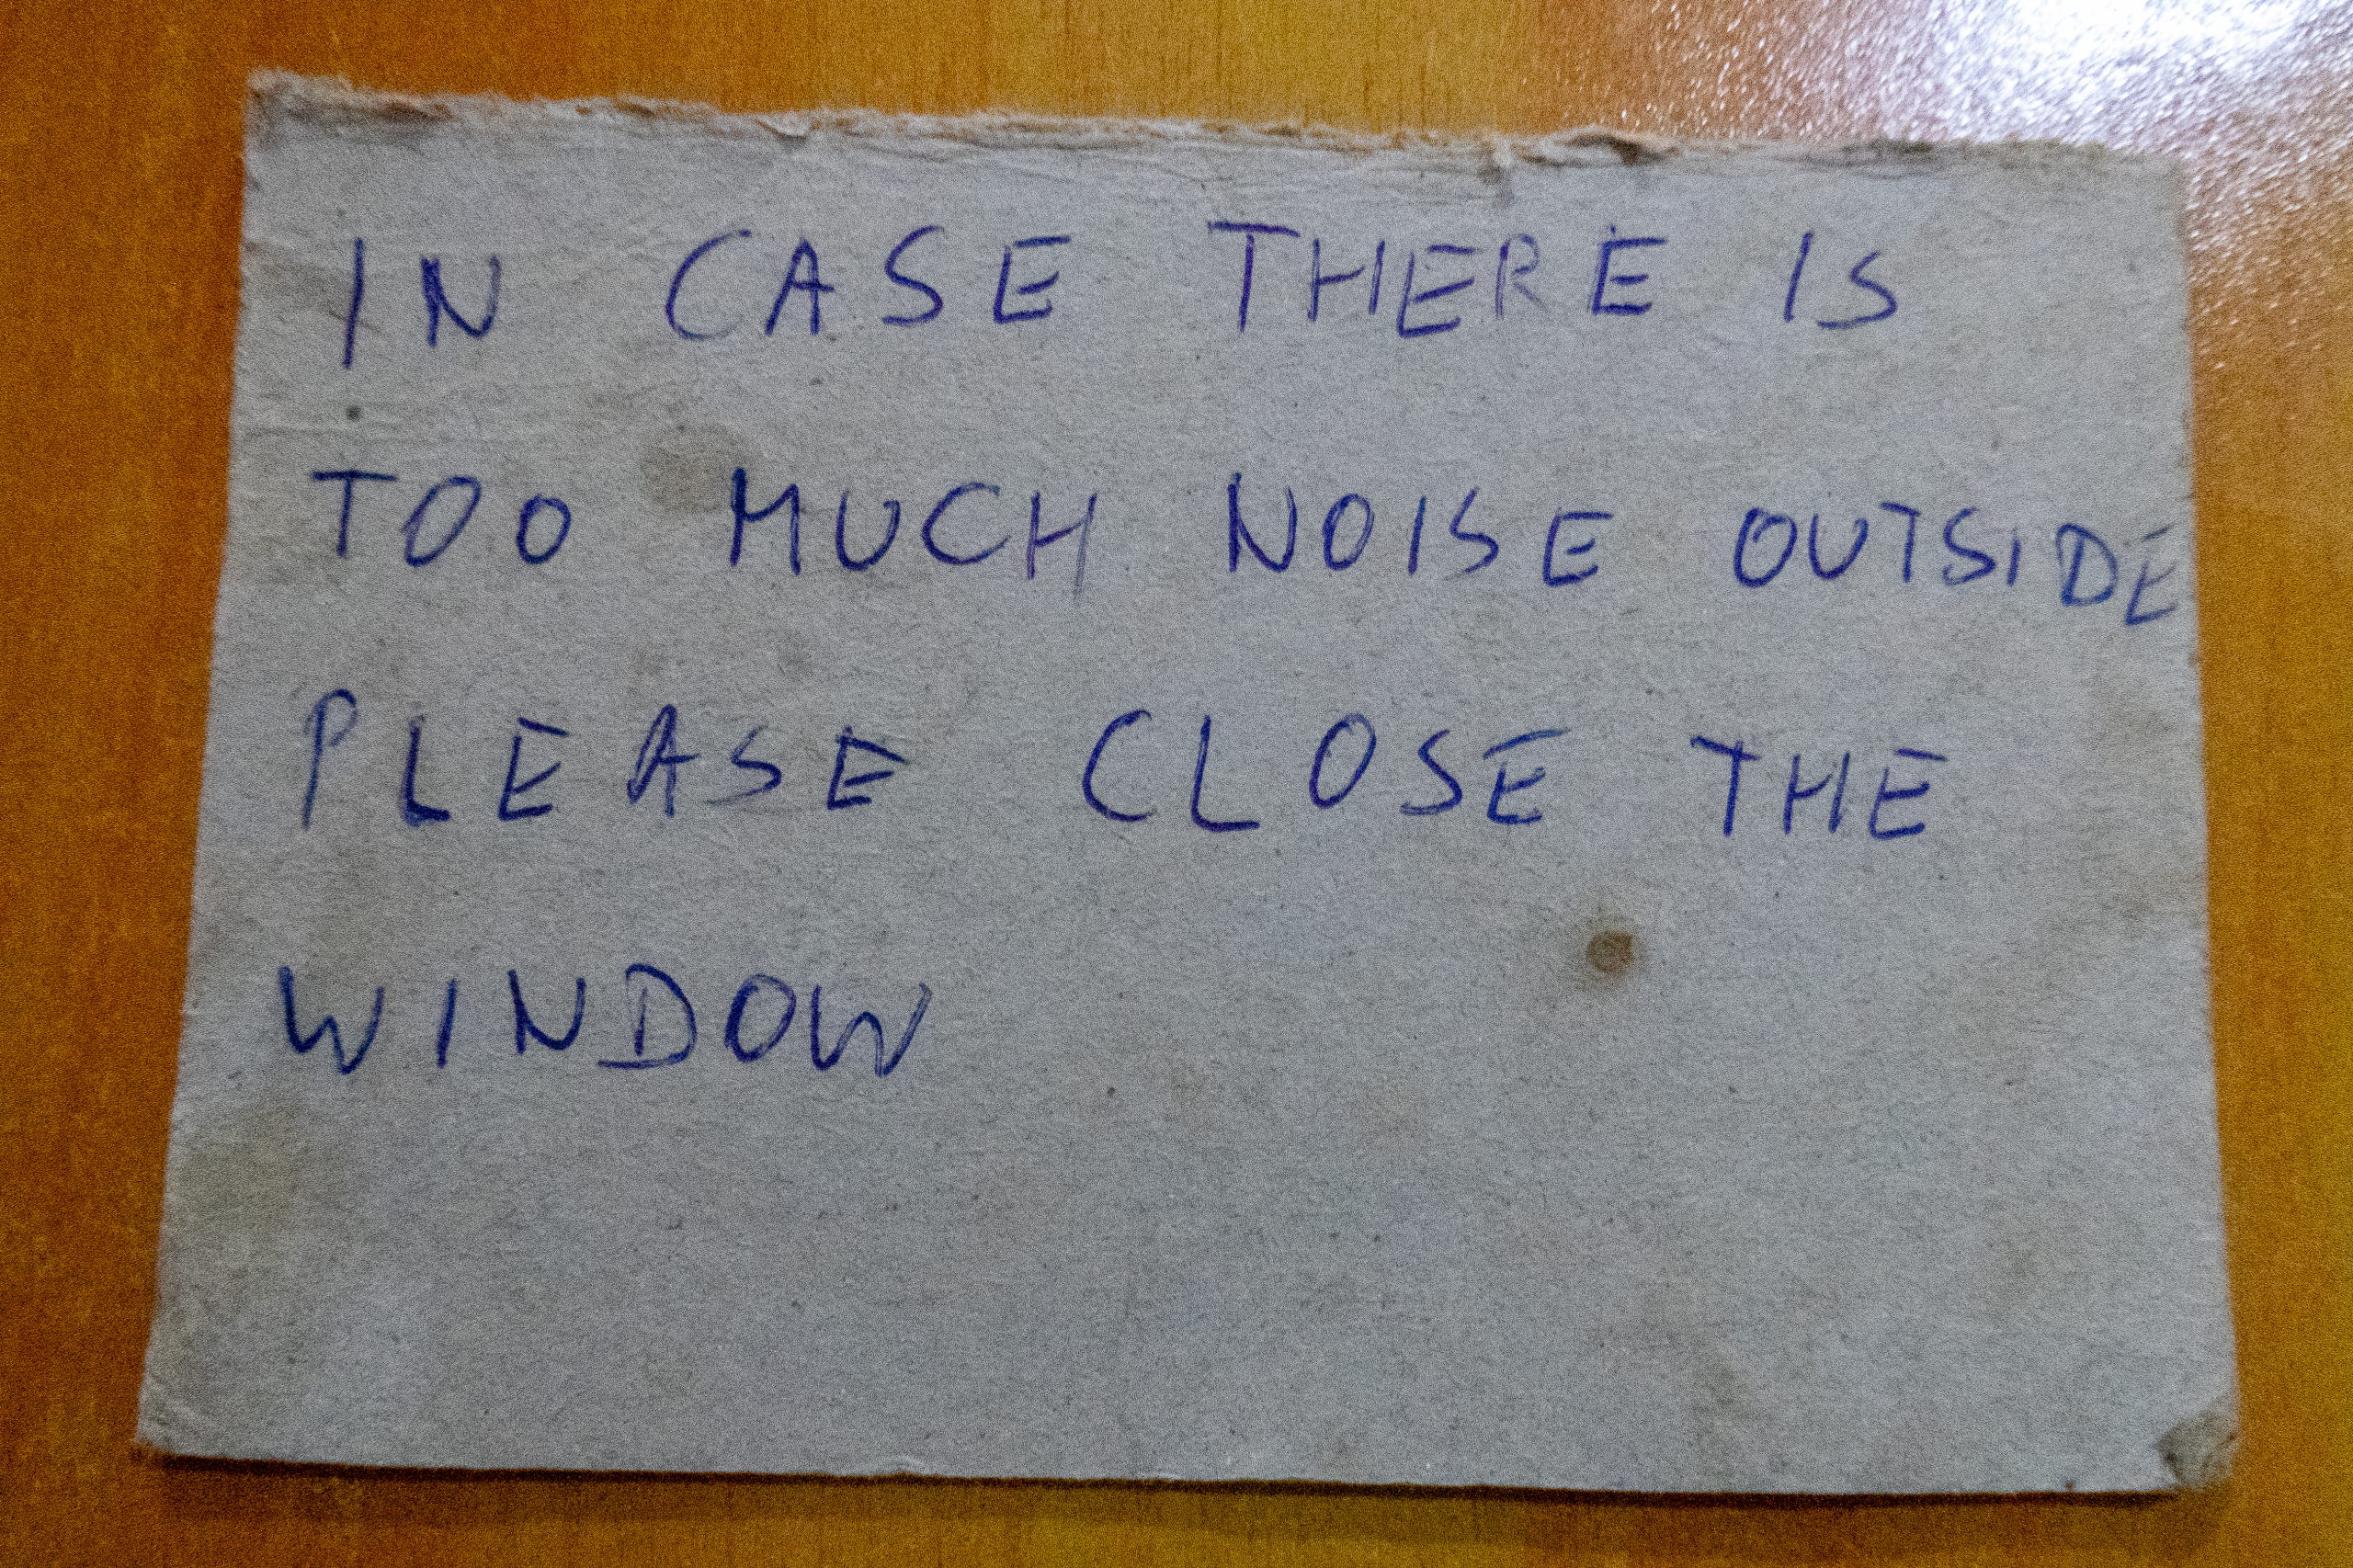 IN CASE THERE IS
TOO MUCH NOISE OUTSIDE
PLEASE CLOSE THE
WINDOW